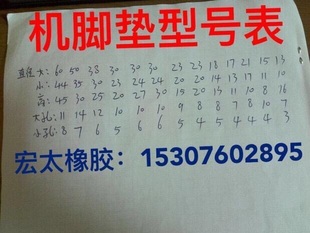 机脚垫型号表
直径大: 60 50 38 30 30 30 23 23 18 17 21 15 13
小: 44 35 30 23 24 24 20 20 14 13 17 11 10
高: 45 30 25 20 27 30 19 15 20 13 11 10 8 16
大孔: 11 14 12 10 10 10 9 8 8 7 8 10 7
小孔: 8 7 6 5 6 6 5 4 5 4 4 4 3
宏太橡胶：15307602895